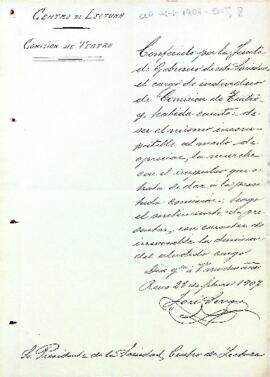 CENTRO DE LECTURA
COMISIÓN DE TEATRO
Conferido por la Junta
de Gobierno de esta Sociedad
el cargo de individuo
de Comision de Teatro
y, habida cuenta de
ser el mismo incom-
patible al modo de
apreciar, la marcha
con el impulso que
trata de dar a la
Comision; tengo
el sentimiento de pre-
sentar, con caracter de
irrevocable la dimision
del aludido cargo
Dios gue a V muchos años
Reus 28 de 1907
José
Sr. Presidente de la Sociedad, Centro de Lectura